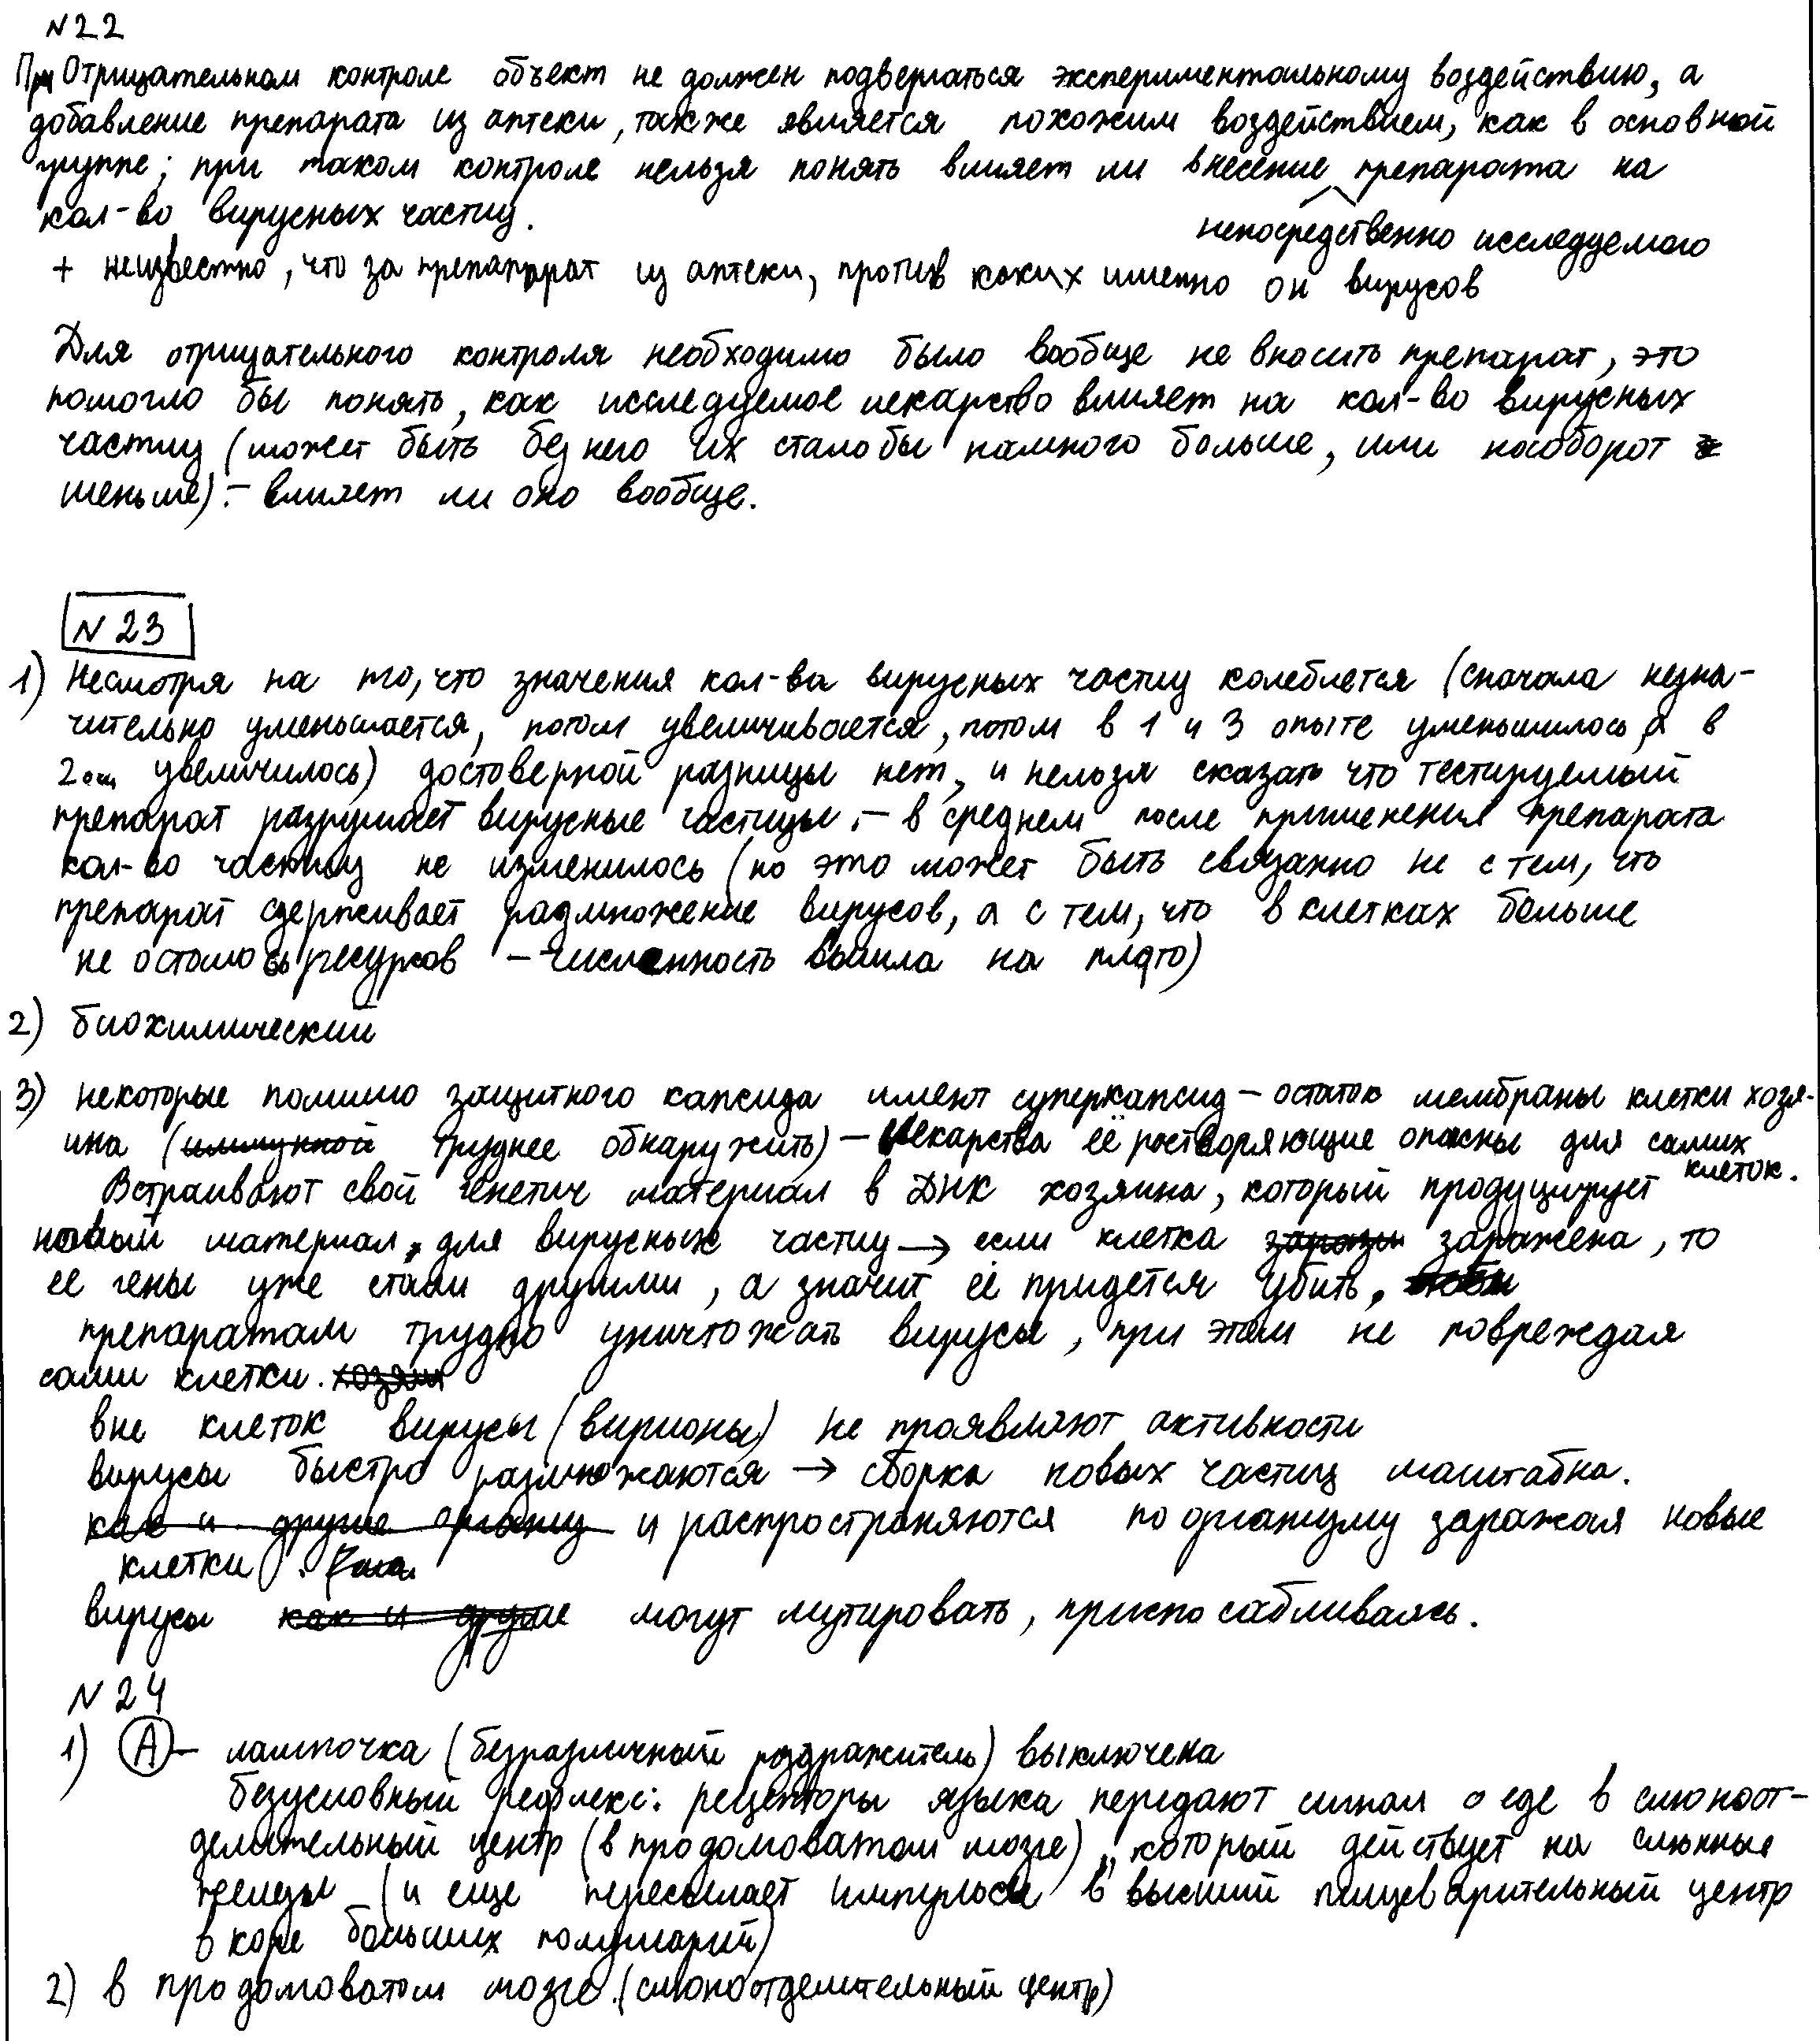 N22
При Отрицательном контроле объект не должен подвергаться экспериментальному воздействию, а
добавление препарата из аптеки, также является похожим воздействием, как в основной
группе; при таком контроле нельзя понять влияет ли внесение препарата на
кол-во вирусных частиц.
непосредственно исследуемого
+ неизвестно, что за препарат из аптеки, против каких именно он вирусов
Для отрицательного контроля необходимо было вообще не вносить препарат, это
помогло бы понять, как исследуемое лекарство влияет на кол-во вирусных
частиц (может быть без него их стало бы намного больше, или наоборот
меньше) - влияет ли оно вообще.
N 23
1) Несмотря на то, что значения кол-ва вирусных частиц колеблется (сначала незна-
чительно уменьшается, потом увеличивается, потом в 1 и 3 опыте уменьшилось, а в
2ом увеличилось) достоверной разницы нет, и нельзя сказать что тестируемый
препарат разрушает вирусные частицы. - в среднем после применения препарата
кол-во частиц не изменилось (но это может быть связанно не с тем, что
препарат сдерживает размножение вирусов, а с тем, что в клетках больше
не осталось ресурсов - численность вышла на плато)
2) биохимический
3) некоторые помимо защитного капсида имеют суперкапсид - остаток мембраны клетки хозя-
ина (иммунной труднее обнаружить) - лекарства её растворяющие опасны для самих
клеток.
Встраивают свой генетич материал в ДНК хозяина, который продуцирует
новый материал, для вирусных частиц → если клетка заражена, то
ее гены уже стали другими, а значит её придется убить,
препаратам трудно уничтожать вирусы, при этом не повреждая
сами клетки. хозяин
вне клеток вирусы (вирионы) не проявляют активности
вирусы быстро размножаются → сборка новых частиц масштабна.
как и другие и распространяются по организму заражая новые
клетки).
вирусы как и другие могут мутировать, приспосабливаясь.
N 24
1) А - лампочка (безразличный раздражитель) выключена
безусловный рефлекс: рецепторы языка передают сигнал о еде в слюноот-
делительный центр (в продолговатом мозге), который действует на слюнные
железы (и еще пересылает импульсы в высший пищеварительный центр
в коре больших полушарий)
2) в продолговатом мозге (слюноотделительный центр)